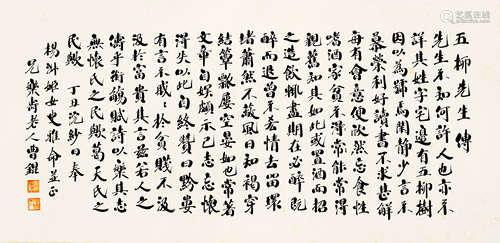 五柳先生傳
先生不知何許人也亦不
詳其姓字宅邊有五柳樹
因以為號焉閑靜少言不
慕榮利好讀書不求甚解
每有會意便欣然忘食性
嗜酒家貧不得常能常得
親舊知其如此或置酒而招
之造飲輒盡期在必醉既
醉而退曾不吝情去留環
堵蕭然不蔽風日裋褐穿
結簞瓢屢空晏如也常著
文章自娛頗示己志忘懷
得失以此自終贊曰黔婁
有言不戚戚於貧賤不汲
汲於富貴其言茲若人之
儔乎銜觴賦詩以樂其志
無懷氏之民歟葛天氏之
民歟 丁丑 鈔奉
女史雅命並正
老人曹